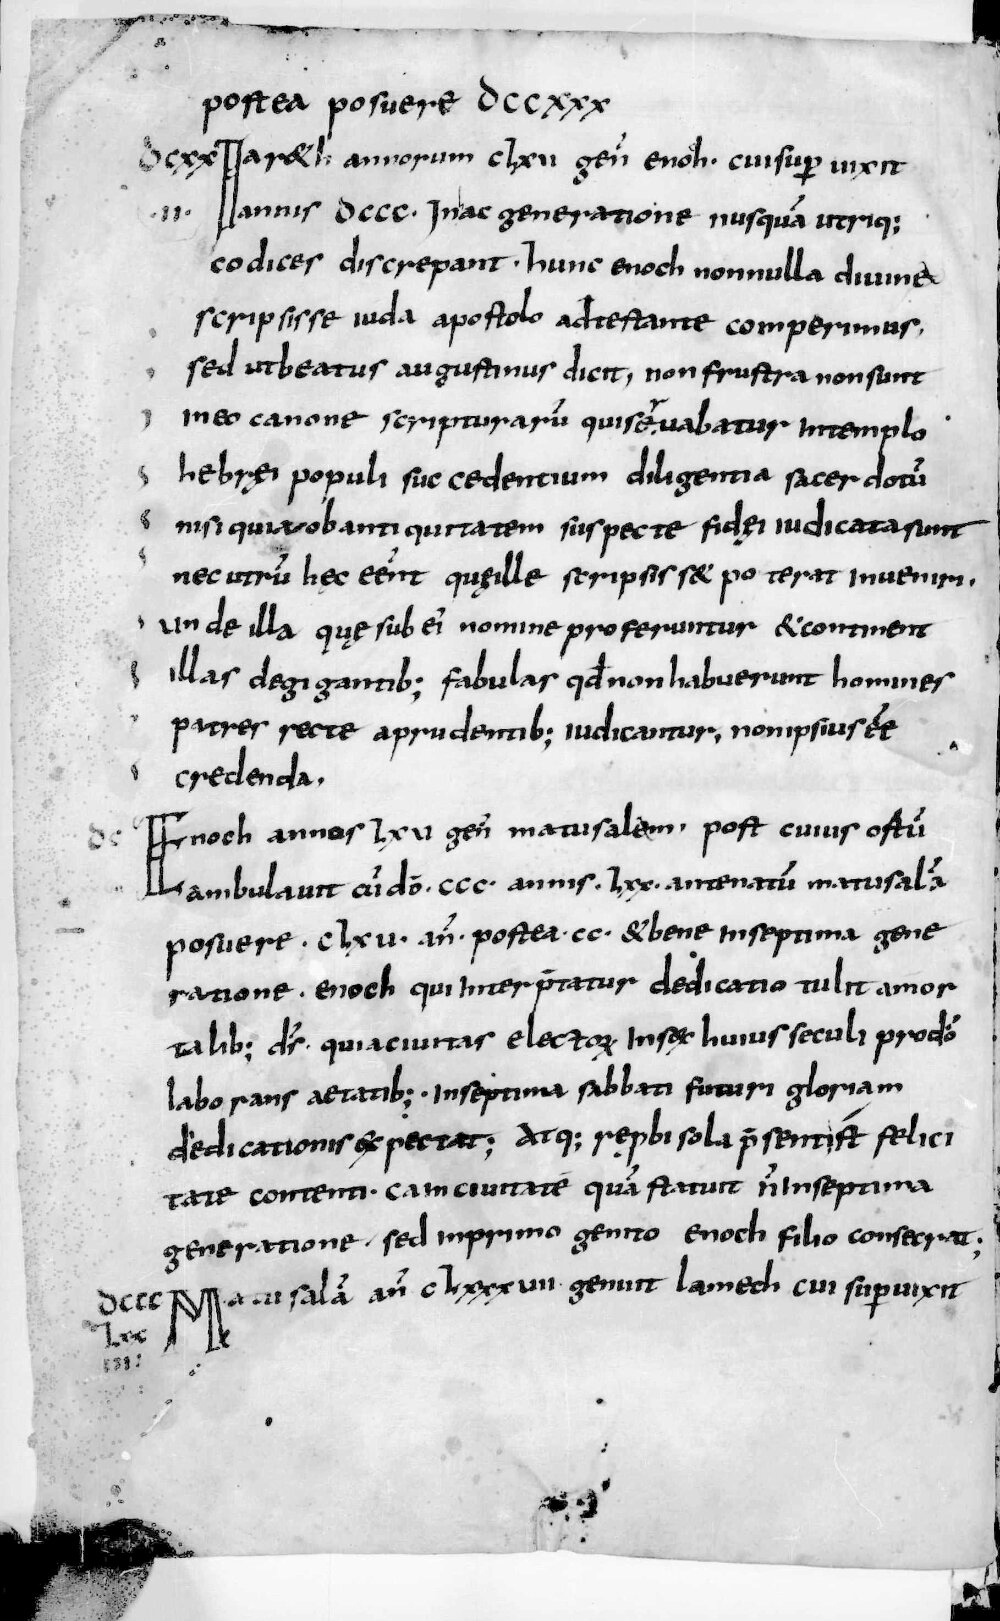 postea posuere DCCXXX
DCXX Iar&h annorum clxii geñ enoh. cui sup̱ uixit
.II. annis DCCC. In ac generatione nusquā utriq;
codices discrepant. hunc enoch nonnulla diuine
scripsisse iuda apostolo adtestante comperimus,
sed ut beatus augustinus dicit, non frustra non sunt
in eo canone scripturarū qui seruabatur in templo
hebręi populi succedentium diligentia sacerdotū
nisi quia ob antiquitatem suspecte fidęi iudicata sunt
nec utrū hęc eēnt quę ille scripsiss& poterat inueniri.
unde illa quę sub ei nomine proferuntur & continent
illas de gigantib; fabulas qđ non habuerunt homines
patres recte a prudentib; iudicantur, non ipsius eē
credenda.
DC Enoch annos lxu geñ matusalem. post cuius ostū
ambulauit cū dō. ccc. annis. lxx. ante natū matusalā
posuere. clxu. añ. postea. cc. & bene in septima gene
ratione. enoch qui interp̄tatur dedicatio tulit a mor
talib; ds̄. quia ciuitas electoꝝ in sex huius seculi pro dō
laborans aetatib;. in septima sabbati futuri gloriam
dedicationis expectat; Atq; ręp̱bi sola p̄sentis felici
tate contenti. cain ciuitatē quā statuit n̄ in septima
generatione. sed in primogenito enoch filio consecrat;
DCCCC Matusalā añ clxxxuii genuit lamech cui sup̱uixit
Lxx
IIII: